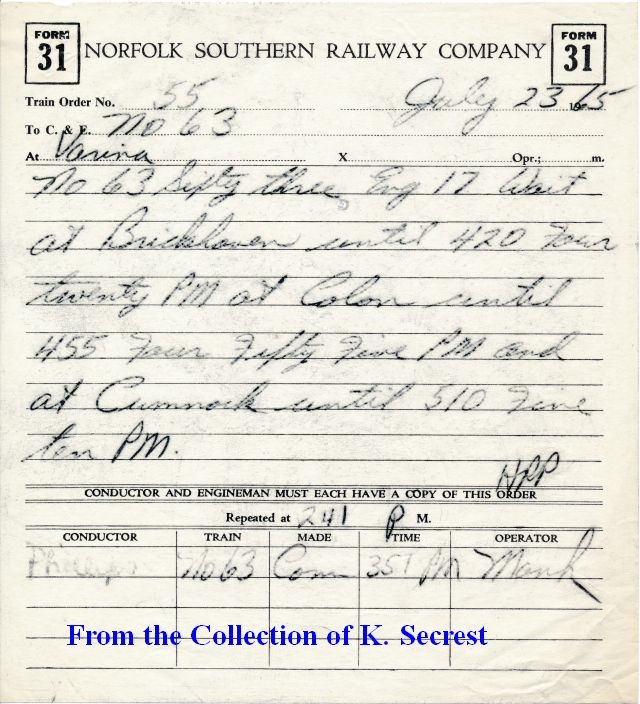 FORM 31 NORFOLK SOUTHERN RAILWAY COMPANY FORM 31
Train Order No. 55 July 23 195
To C. & E. No 63
At Varina X Opr.; m.
No 63 Sixty three Eng 17 Wait
at Brickhaven until 420 Four
twenty PM at Colon until
455 Four Fifty Five PM and
at Cumnock until 510 Five
ten PM.
HPP
CONDUCTOR AND ENGINEMAN MUST EACH HAVE A COPY OF THIS ORDER
Repeated at 241 P M.
CONDUCTOR TRAIN MADE TIME OPERATOR
Phillips No 63 Com 357 PM
From the Collection of K. Secrest